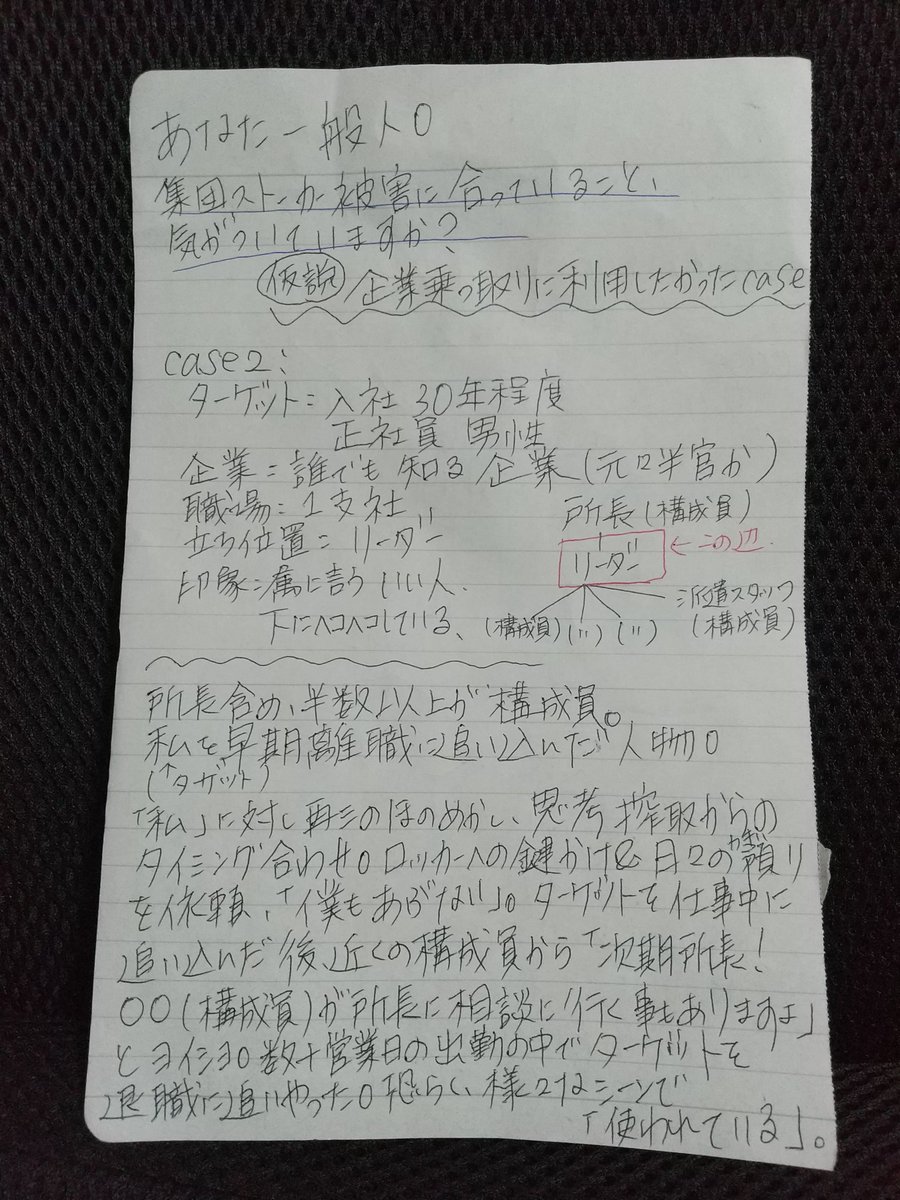 あなた一般人。
集団ストーカー被害に合っていること、
気がついていますか？
仮説 企業乗っ取りに利用したかったcase
case2:
ターゲット=入社30年程度
正社員 男性
企業=誰でも知る企業(元々半官か)
職場=1支社
立ち位置=リーダー
印象=俗に言ういい人。
下にヘコヘコしている。
所長(構成員)
リーダー ←この辺。
(構成員)(〃)(〃)
派遣スタッフ
(構成員)
所長含め、半数以上が構成員。
私を早期離職に追い込んだ人物。
(↑ターゲット)
「私」に対し再三のほのめかし、思考搾取からの
タイミング合わせ。ロッカーへの鍵かけ&日々の鍵預り
を依頼、「僕もあぶない」。ターゲットを仕事中に
追い込んだ後、近くの構成員から「次期所長!
○○(構成員)が所長に相談に行く事もありますよ」
とヨイショ。数十営業日の出勤の中でターゲットを
退職に追いやった。恐らく、様々なシーンで
「使われている」。